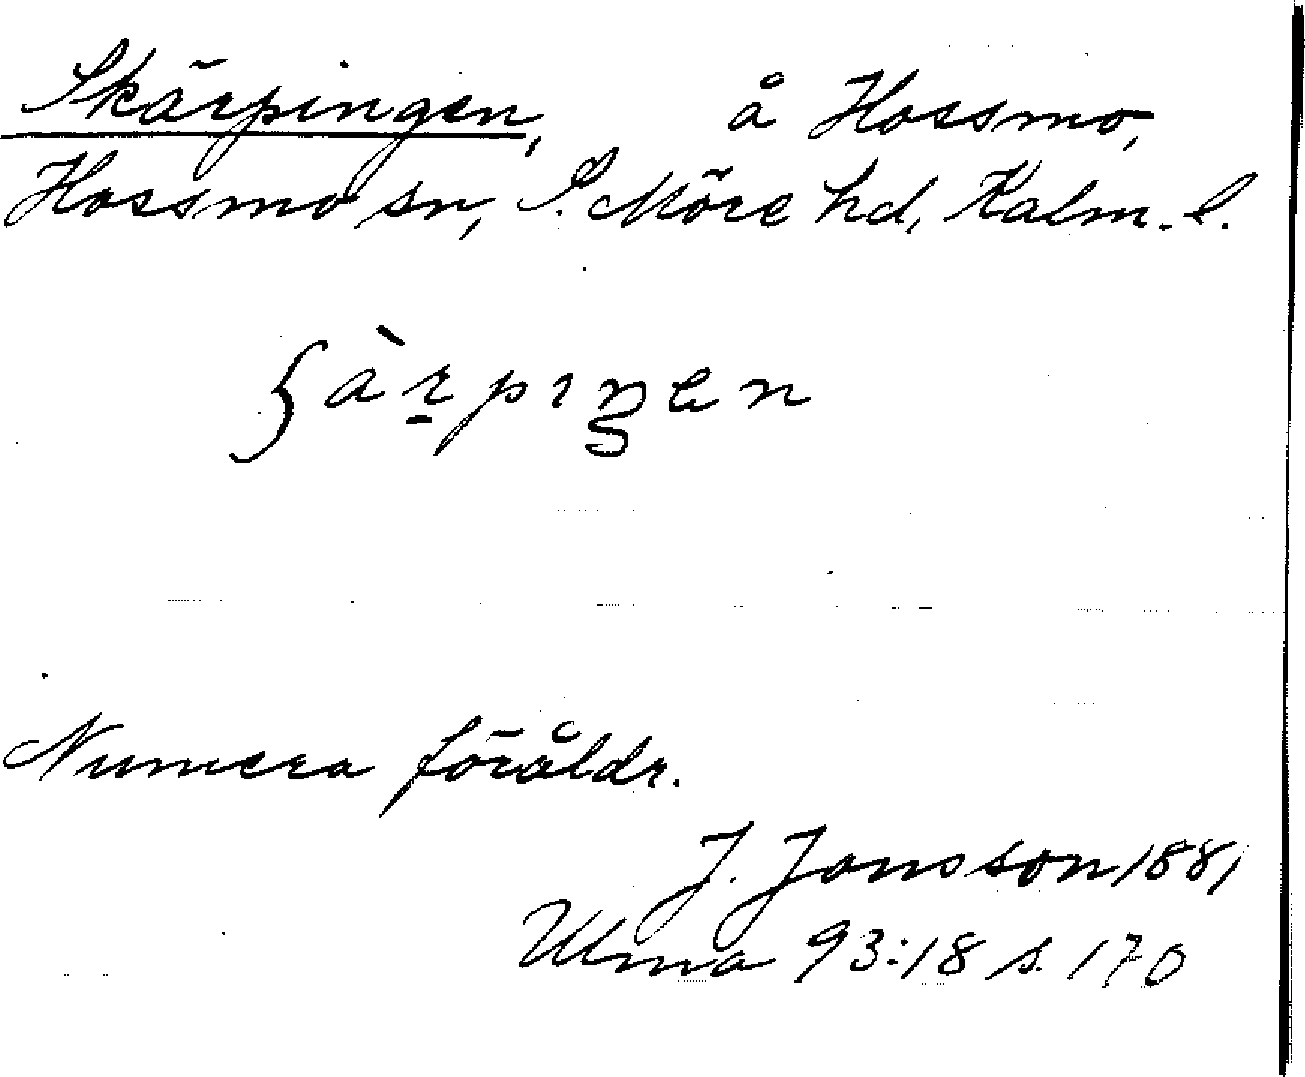 Skärpingen, å Hossmo,
Hossmo sn, S. Möre hd, Kalm. l.
ʃàr̠pıŋen
Numera föråldr.
J. Jonsson 1881
Ulma 93:18 s. 170